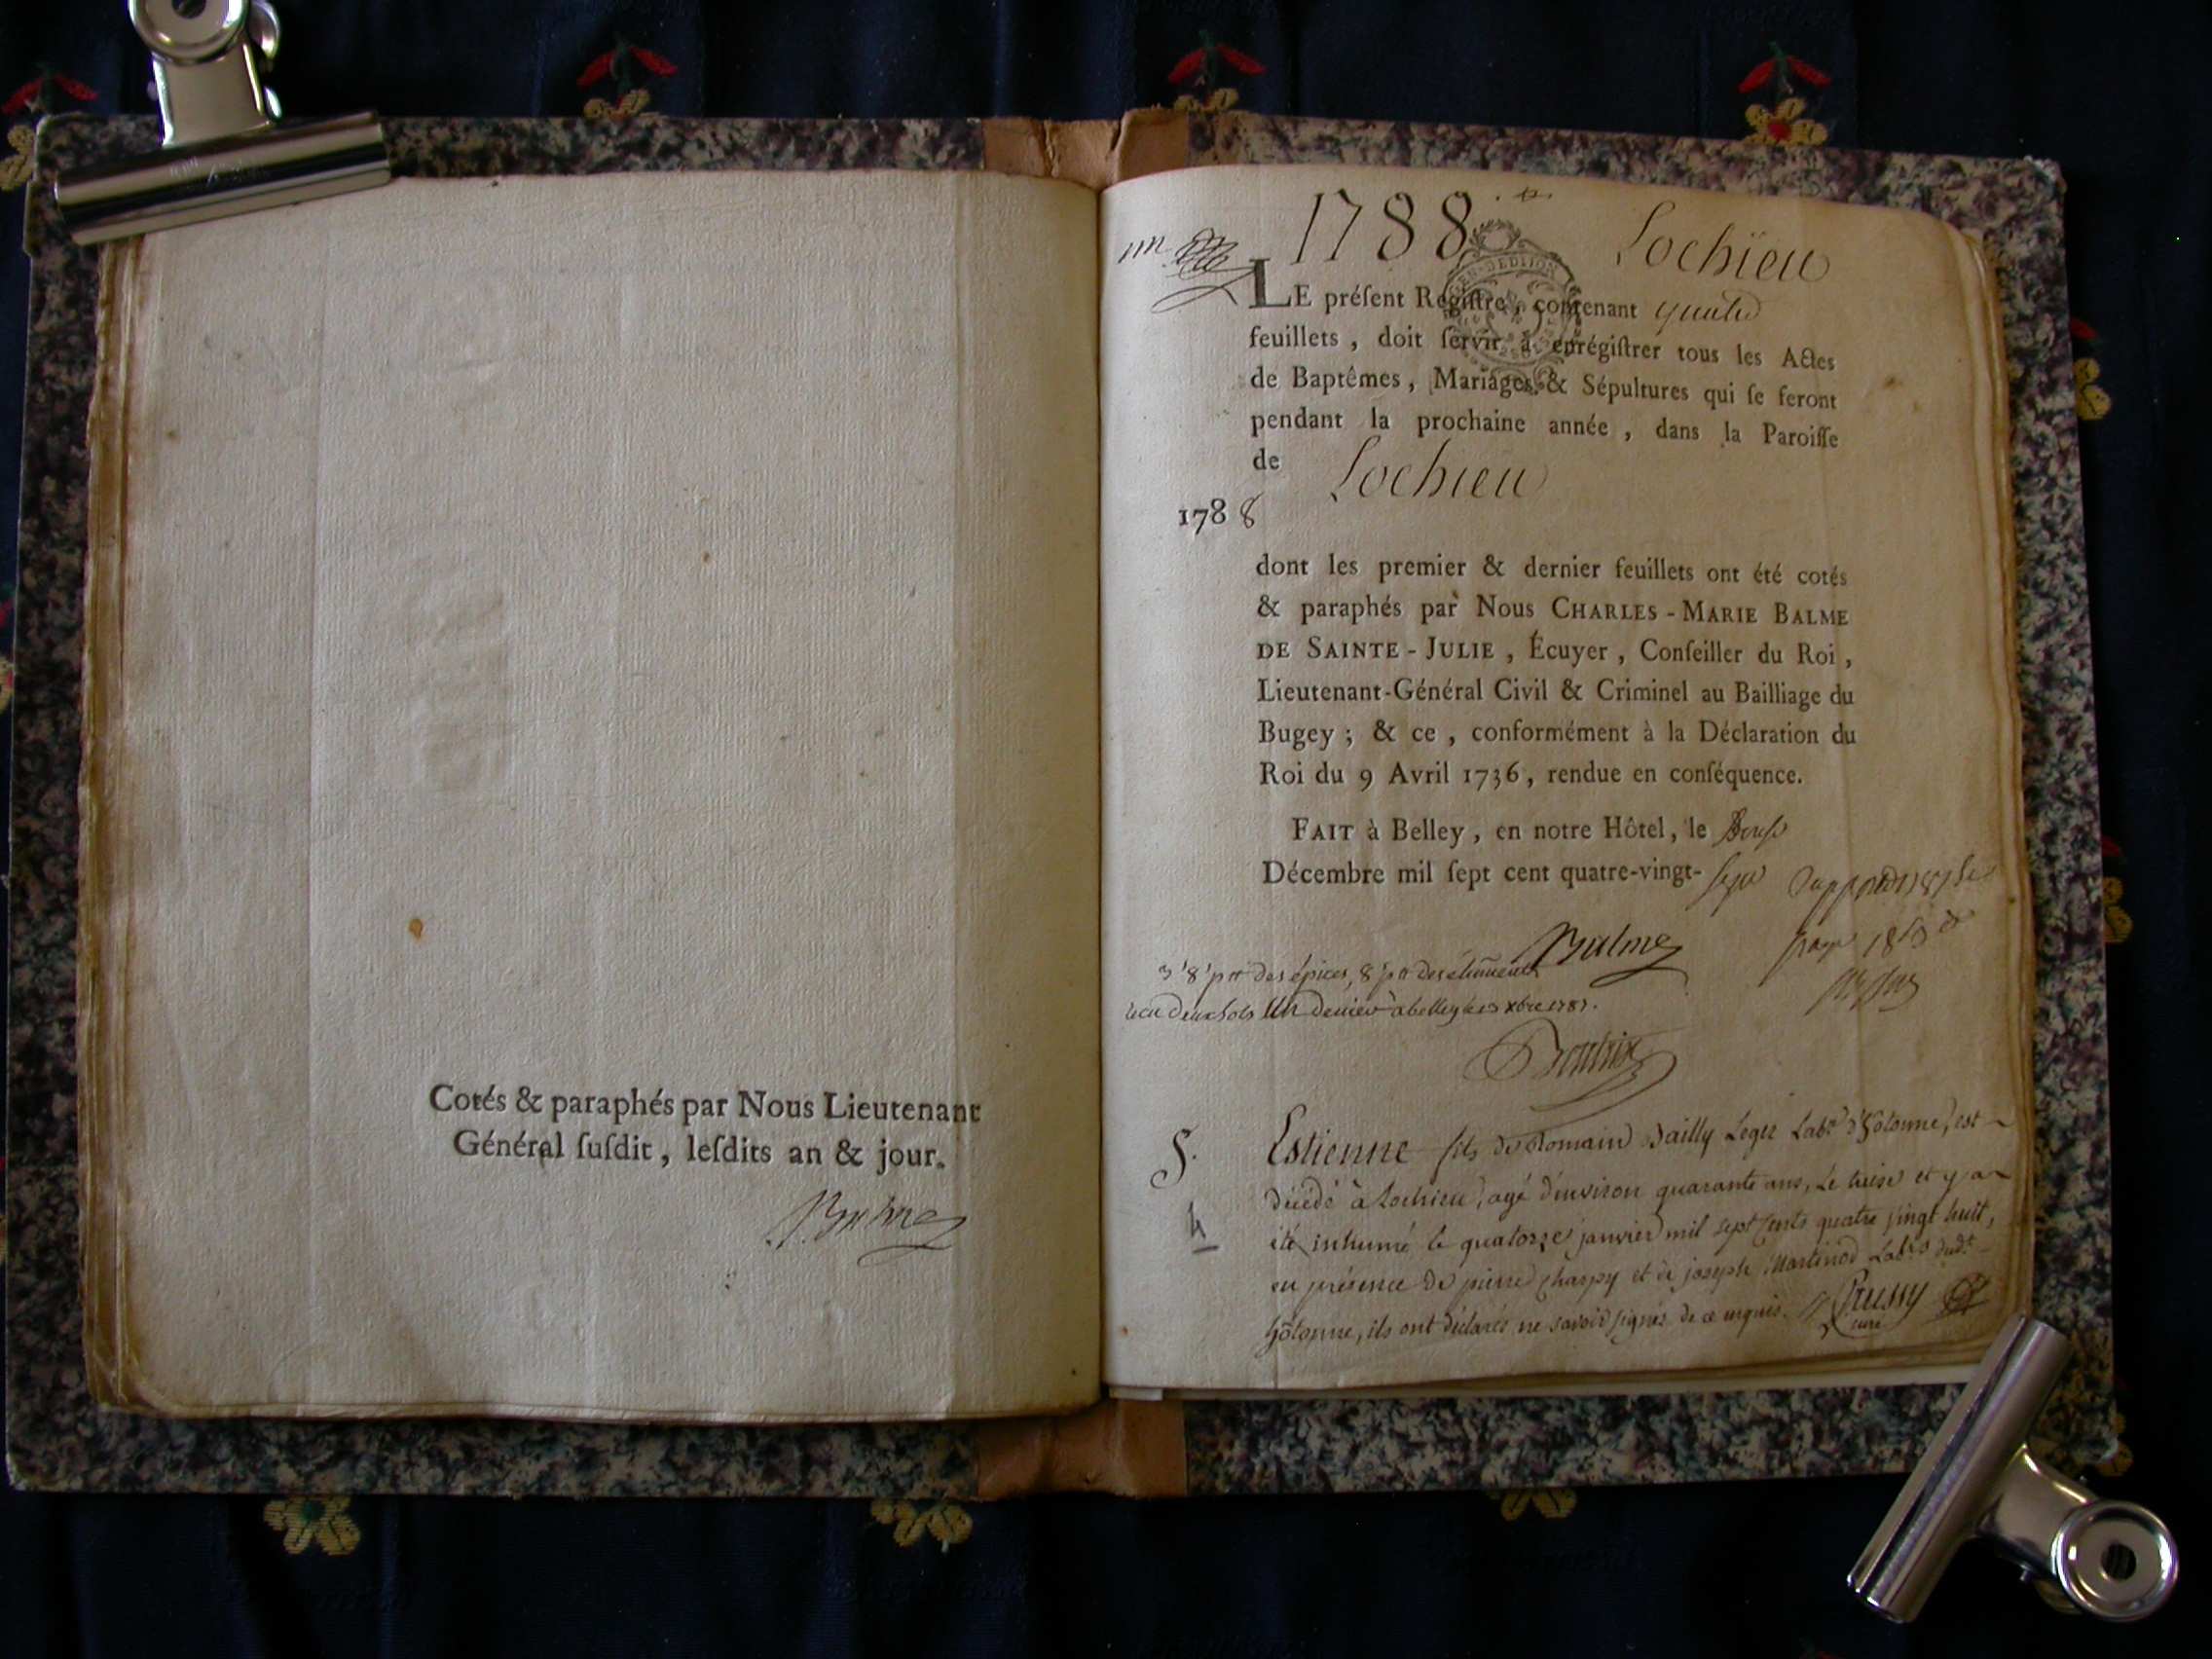 Cotés & paraphés par Nous Lieutenant
Général ſuſdit, leſdits an & jour.
Balme
1788
Lochieu
LE préſent Regiſtre, contenant quatre
feuillets, doit ſervir à enrégiſtrer tous les Actes
de Baptêmes, Mariages & Sépultures qui ſe feront
pendant la prochaine année, dans la Paroiſſe
de Lochieu
1788
dont les premier & dernier feuillets ont été cotés
& paraphés par Nous CHARLES-MARIE BALME
DE SAINTE-JULIE, Écuyer, Conſeiller du Roi,
Lieutenant-Général Civil & Criminel au Bailliage du
Bugey; & ce, conformément à la Déclaration du
Roi du 9 Avril 1736, rendue en conſéquence.
FAIT à Belley, en notre Hôtel, le
Décembre mil ſept cent quatre-vingt-
Balme
des épices, 8
deux sols un denier à belley le xbre 1787.
S.
Estienne fils de Romain Bailly Leger Labr d'hotonne, est
décédé à Lochieu, agé d'environ quarante ans, le treise et y a
été inhumé le quatorze janvier mil sept cents quatre vingt huit,
en présence de pierre charpy et de joseph Martinod Labrs dudt
hôtonne, ils ont déclarés ne savoir signés de ce requis.
curé